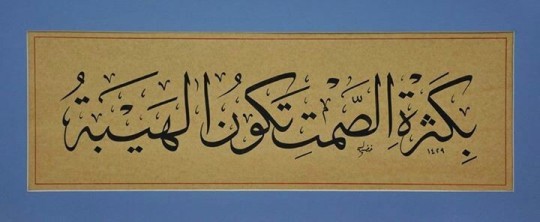 بِكَثْرَةِ الصَّمْتِ تَكُونُ الهَيْبَةُ
١٤٢٩